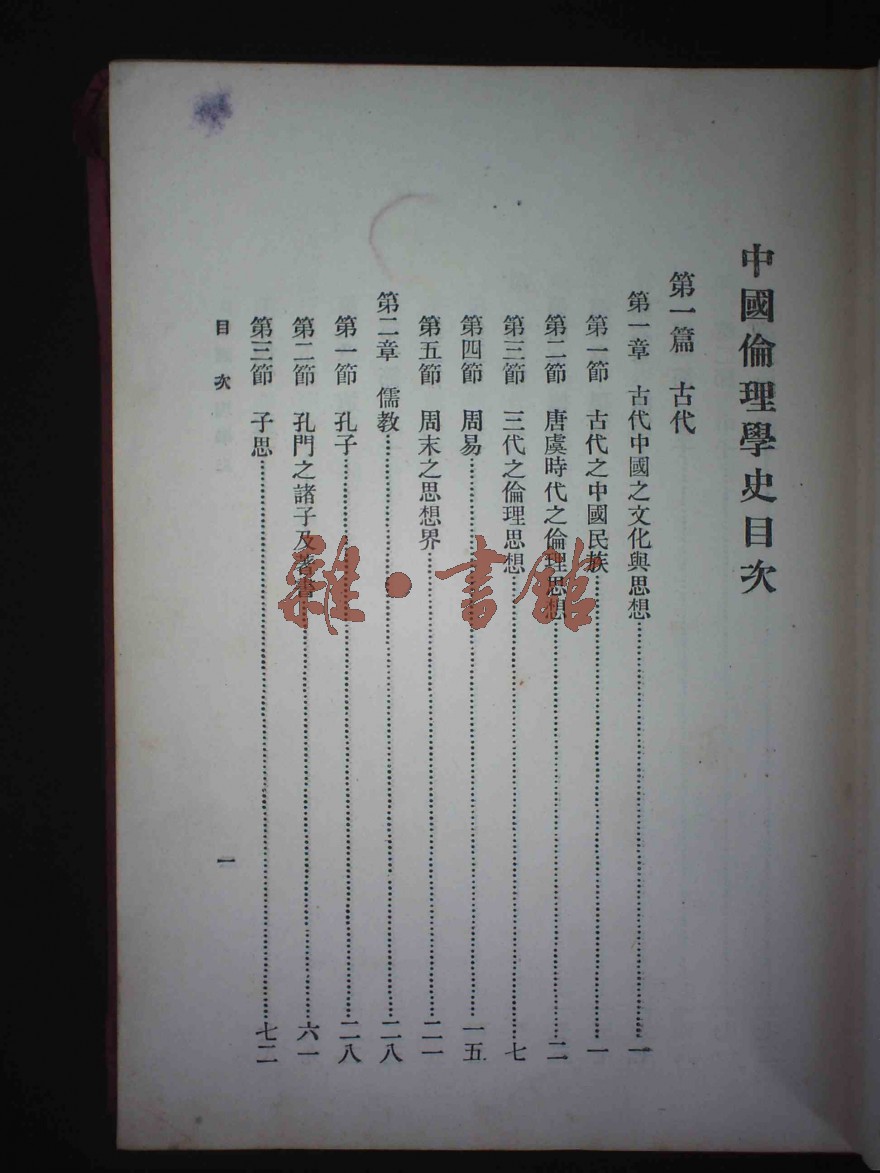 中國倫理學史目次
第一篇 古代
第一章 古代中國之文化與思想……一
第一節 古代之中國民族……一
第二節 唐虞時代之倫理思想……二
第三節 三代之倫理思想……七
第四節 周易……一五
第五節 周末之思想界……二一
第二章 儒教……二八
第一節 孔子……二八
第二節 孔門之諸子及著書……六一
第三節 子思……七二
目次 一
雜·書館